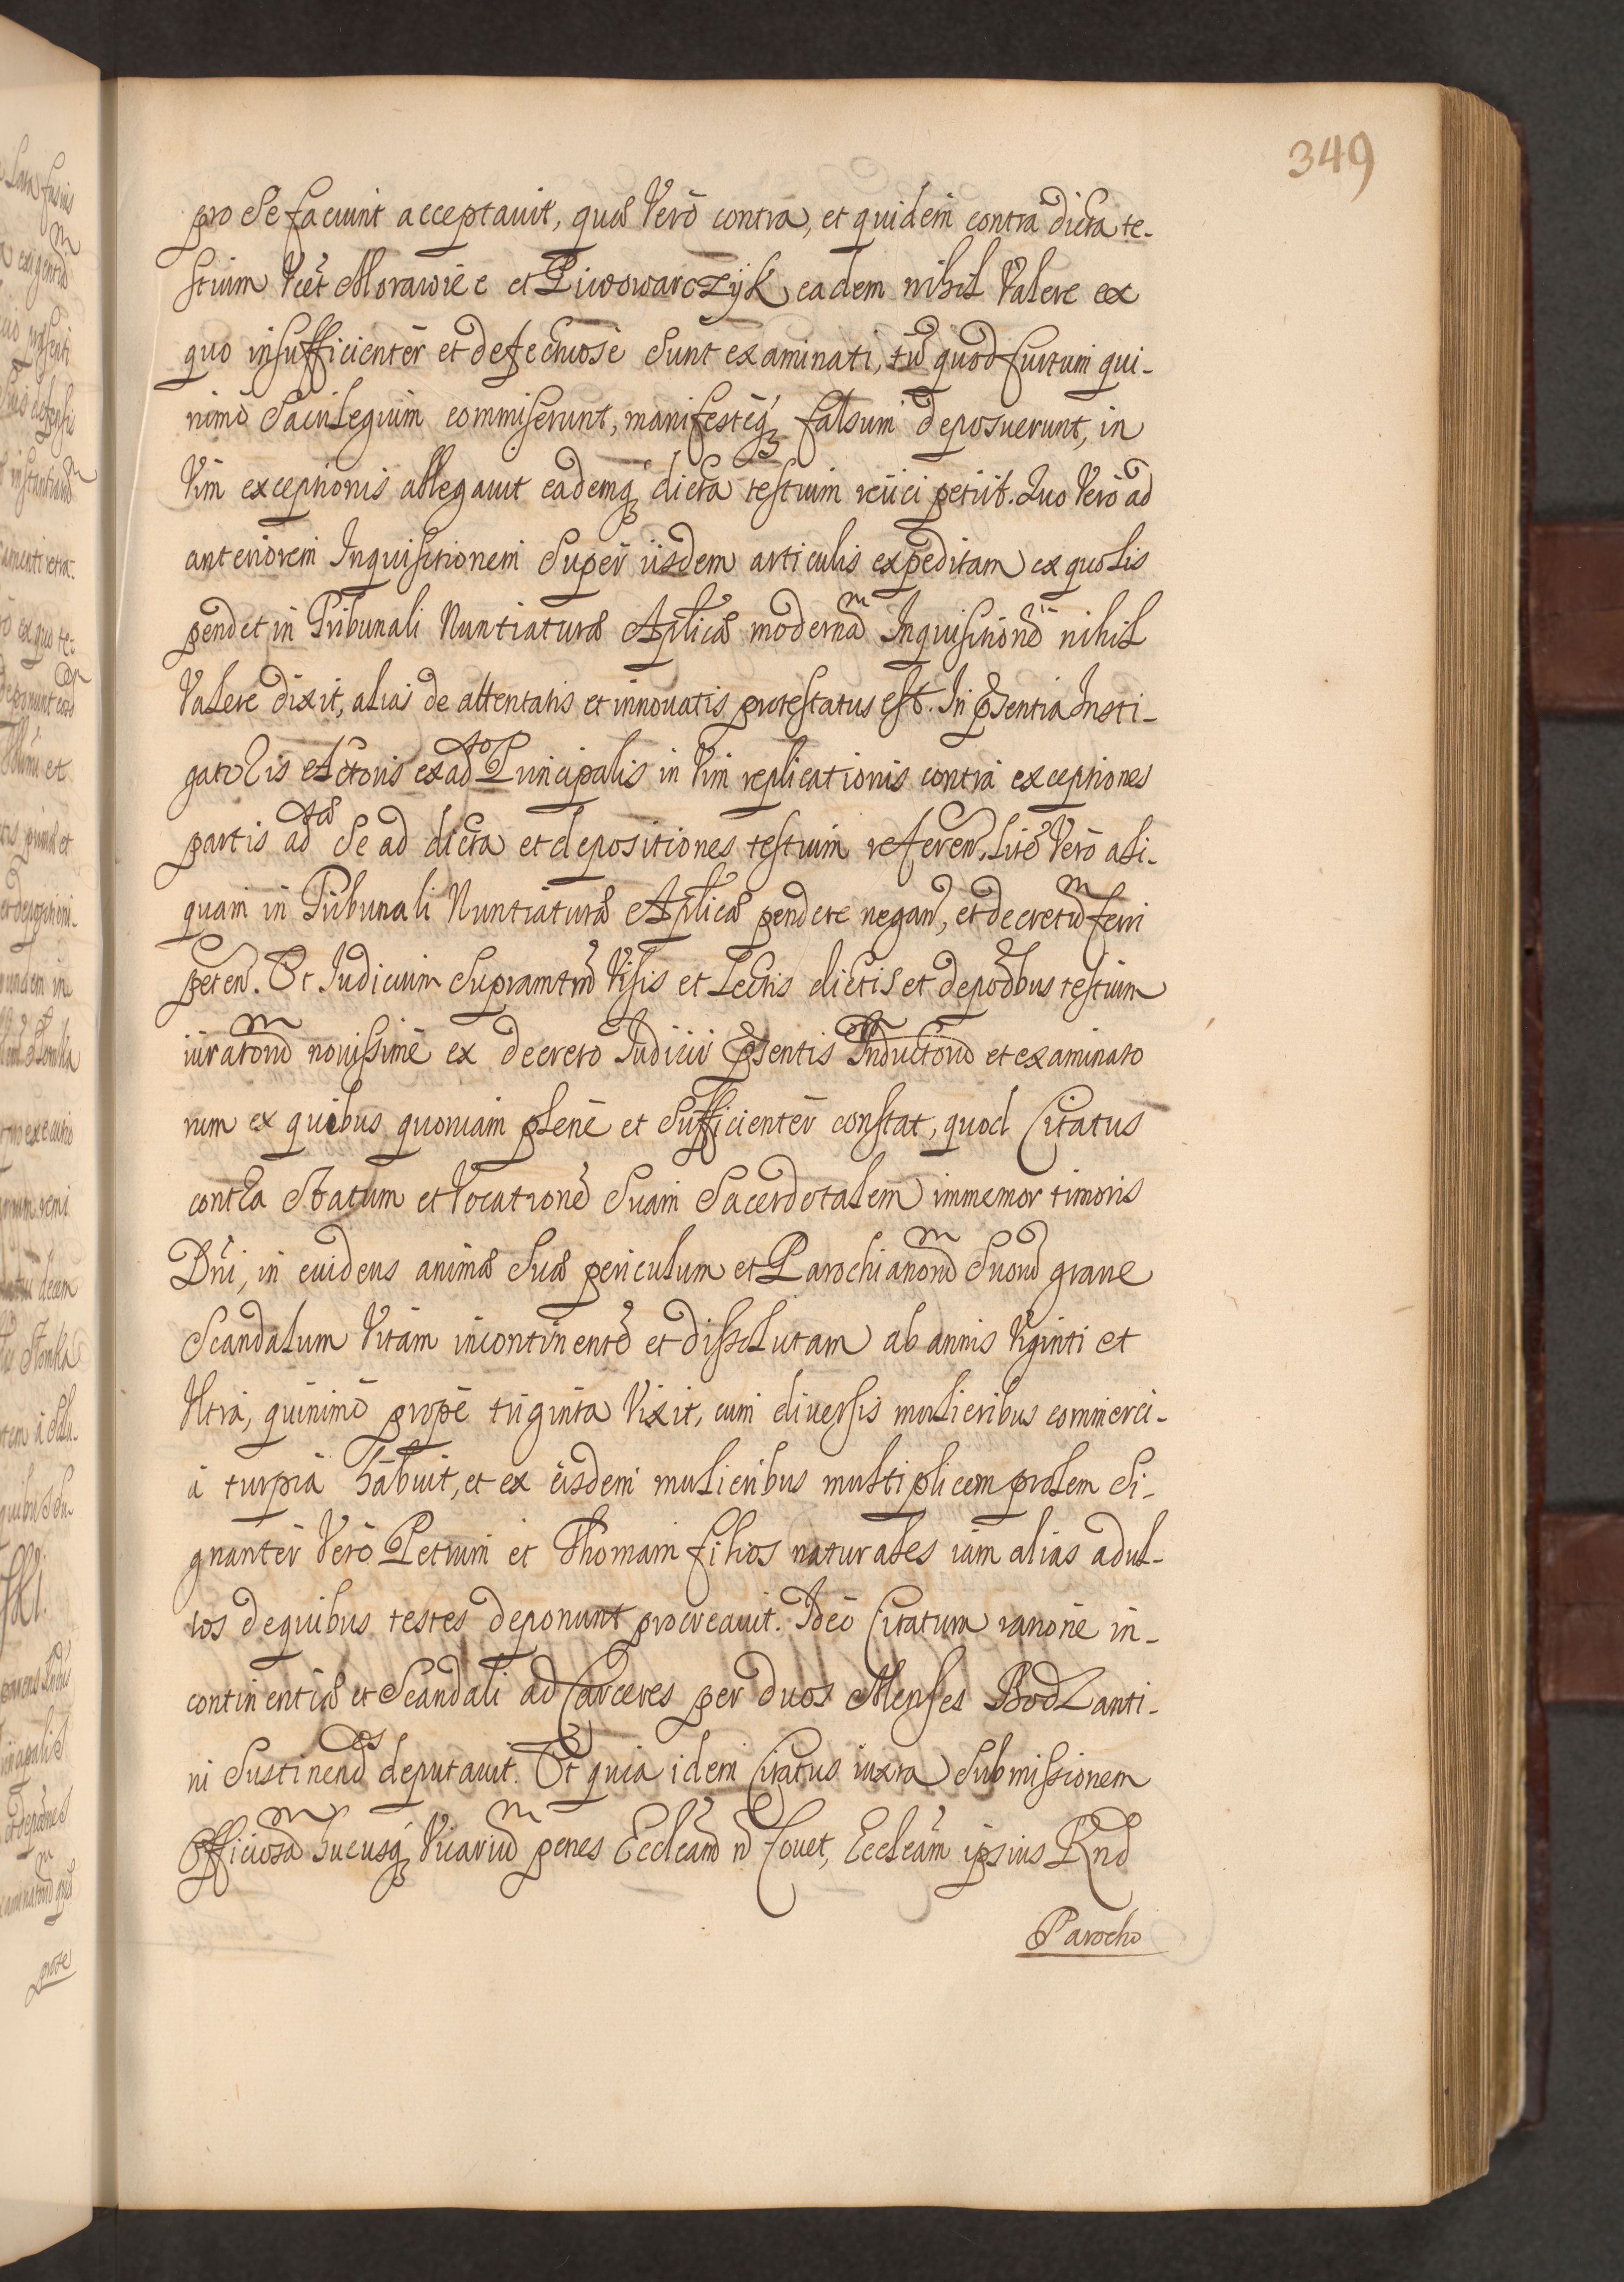 349
pro se faciunt acceptavit, quæ Verò contra, et quidem contra dicta te-
stium Vcet Morawiec et Piwowarczyk, eadem nihil Valere ex
quo insufficientèr et defectuosè sunt examinati, tũ quod furtum qui-
nimò Sacrilegium commiserunt, manifestèq; falsum deposuerunt, in
Vim exceptionis allegavit eademq; dicta testium reiici petiit. Quo Verò ad
anteriorem Inquisitionem supèr iisdem articulis expeditam ex quo Lis
pendet in Tribunali Nuntiaturæ Aplicæ modernam Inquisitionẽ nihil
Valere dixit, alias de attentatis et innovatis protestatus est. In Pṡentia Insti-
gatoris Actoris ex adto Principalis in Vim replicationis contra exceptiones
partis adtæ Se ad dicta et depositiones testium referen. Litẽ Verò ali-
quam in Tribunali Nuntiaturæ Aplicæ pendere negan, et decretum ferri
peten. Et Iudicium Supramtm̃ Visis et Lectis dictis et depoõbus testium
iuratorum novissimè ex decreto Iudicii Pṡentis Inductorum et examinato
rum ex quibus quoniam plenè et Sufficientèr constat, quod Citatus
contra Statum et Vocationẽ Suam Sacerdotalem immemor timoris
Dni, in evidens animæ Suæ periculum et Parochianorum Suorum grave
Scandalum Vitam incontinentẽ et dissolutam ab annis Viginti et
Vltra, quinimò propè triginta Vixit, cum diversis mulieribus commerci-
a turpia habuit, et ex eisdem mulieribus multiplicem prolem si-
gnantèr Verò Petrum et Thomam filios naturales iam alias adul-
tos de quibus testes deponunt procreavit. Ideò Citatum ratione in-
continentiæ et Scandali ad Carceres per duos Menses Bodzanti-
ni Sustinendos deputavit. Et quia idem Citatus iuxta Submissionem
Officiosam hucusq; Vicarium penes Eccleam̃ ñ fovet, Eccleam̃ ipsius Rnd
Parocho